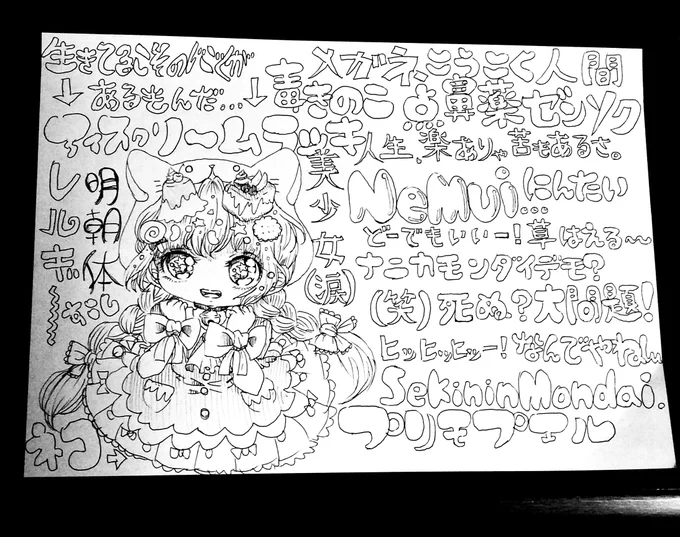 ↓あるもんだ…↓
アイスクリーム
明朝体
ネコ→
メガネ、こうこく人間
毒きのこ 点鼻薬ゼンソク
人生、楽ありゃ苦もあるさ。
美少女(涙)
NeMui…にんたい
どーでもいいー!草はえる〜〜
ナニカモンダイデモ?
(笑)死ぬ?大問題!
ヒッヒッヒッー!なんでやねん
SekininMondai.
プリモプエル